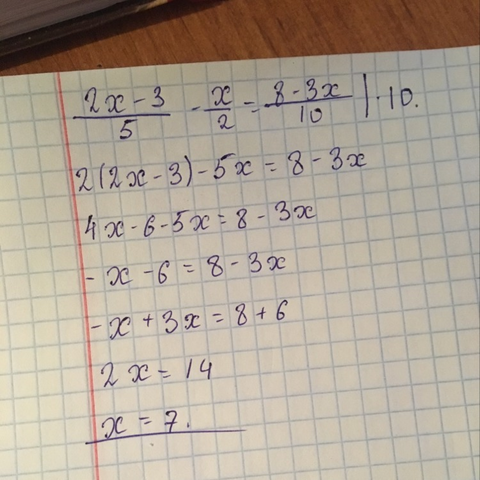 (2x-3)/5 - x/2 = (8-3x)/10 | · 10.
2(2x-3)-5x = 8-3x
4x-6-5x=8-3x
-x-6=8-3x
-x+3x=8+6
2x=14
x=7.